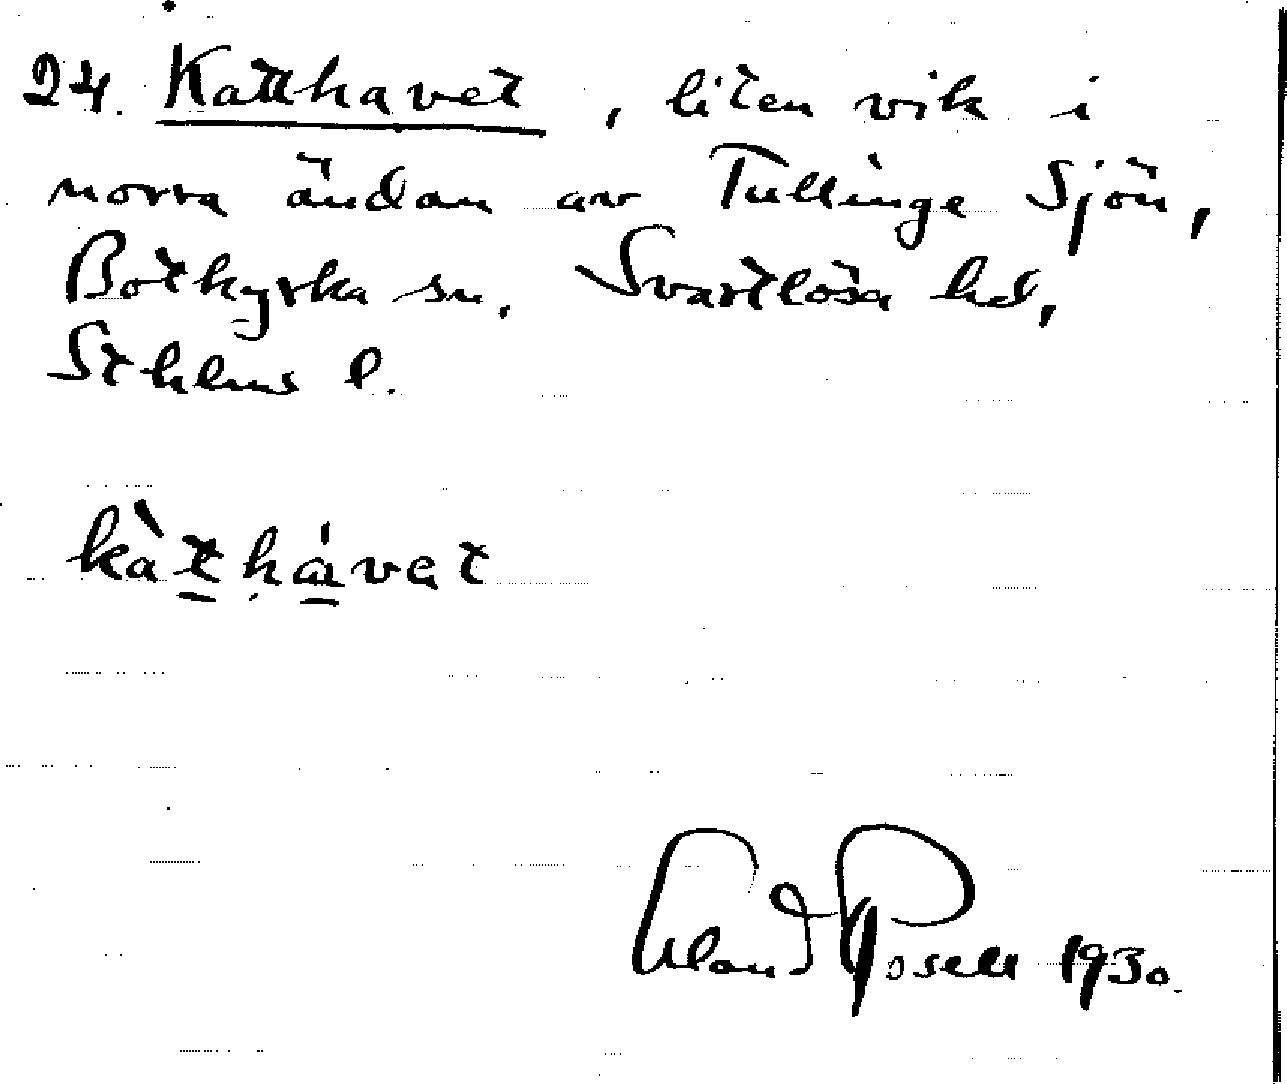 24. Katthavet, liten vik i
norra ändan av Tullinge Sjön,
Botkyrka sn, Svartlösa hd,
Sthlms l.
kàthávat
1930.